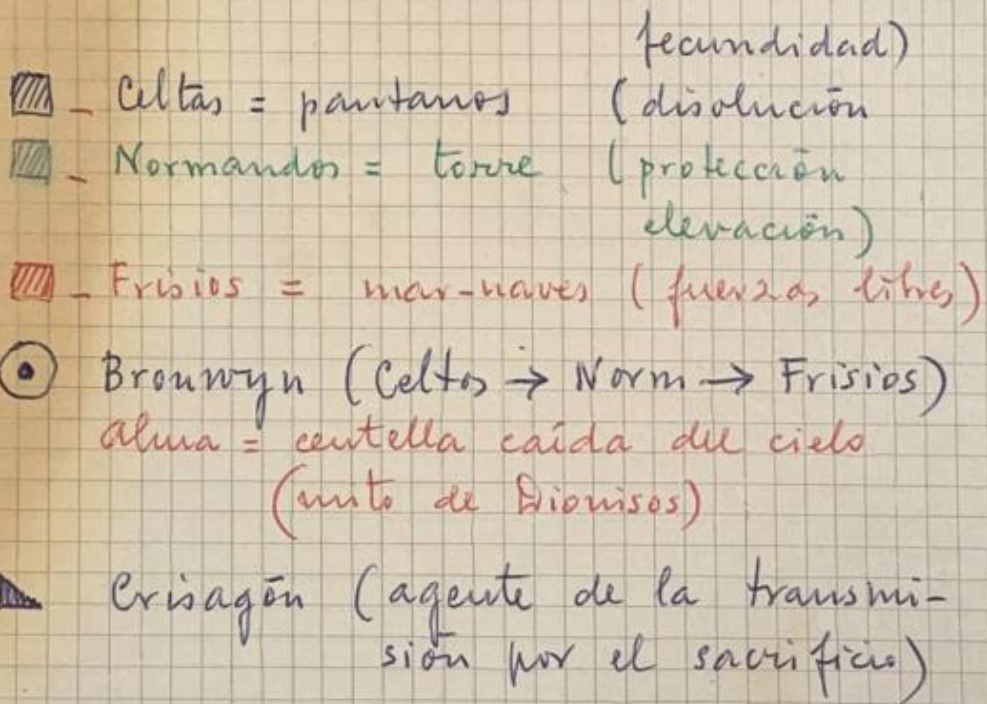 fecundidad)
- Celtas = pantanos (disolución
- Normandos = torre (protección
elevación)
- Frisios = mar-naves (fuerzas libres)
Bronwyn (Celtas → Norm → Frisios)
alma = centella caída del cielo
(mito de Dionisos)
Crisagón (agente de la transmi-
sión por el sacrificio)